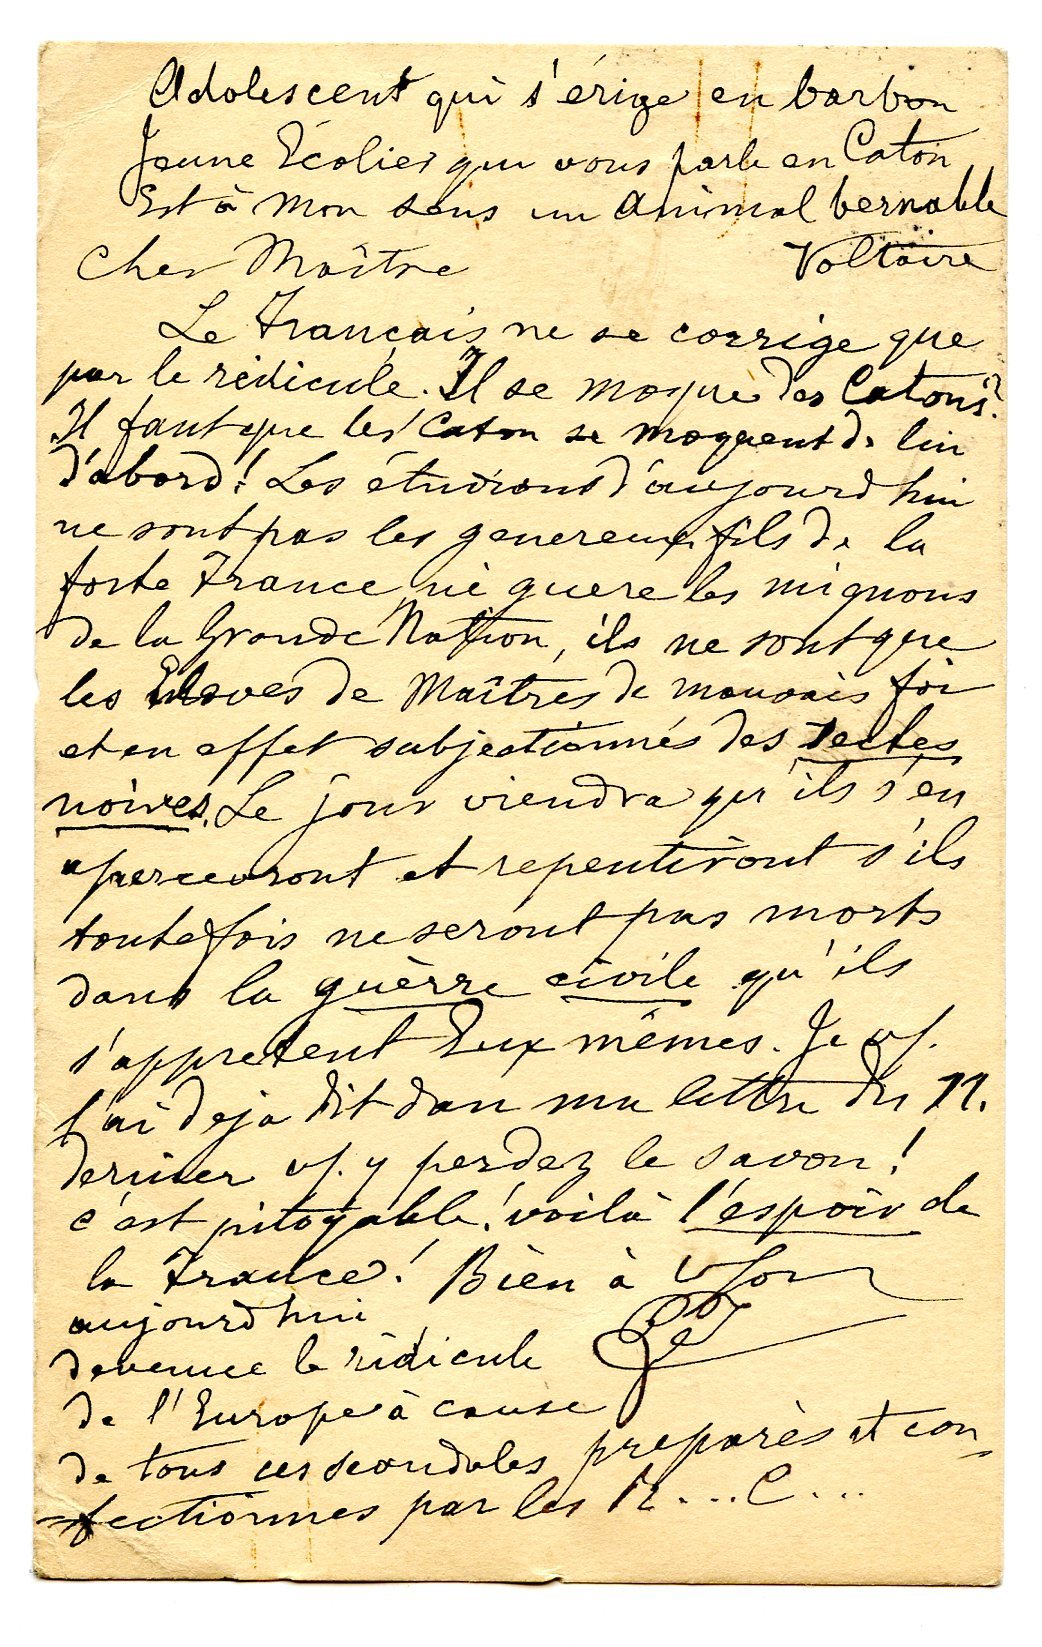 Adolescent qui s'érige en barbon
Jeune Écolier qui vous parle en Caton
Est à mon sens un animal bernable
Voltaire
Cher Maître
Le Français ne se corrige que
par le rédicule. Il se moque des Catons?
Il faut que les Caton se moquent de lui
d'abord! Les étudiants d'aujourd'hui
ne sont pas les genereux fils de la
forte France ni guere les mignons
de la Grande Nation, ils ne sont que
les Eleves de Maîtres de mauvais foi
et en effet subjectionnés des sectes
noires. Le jour viendra qu'ils s'en
apercevront et repentiront s'ils
toutefois ne seront pas morts
dans la guèrre civile qu'ils
s'appretent Eux mêmes. Je vs.
l'ai deja dit dan ma lettre du 11.
dernier vs. y perdez le savon!
c'est pitoyable! voilà l'espoir de
la France! Bien à
aujourd'hui
devenue le ridicule
de l'Europe à cause
de tous ces scandales preparès et con-
=fectionnes par les R...C...